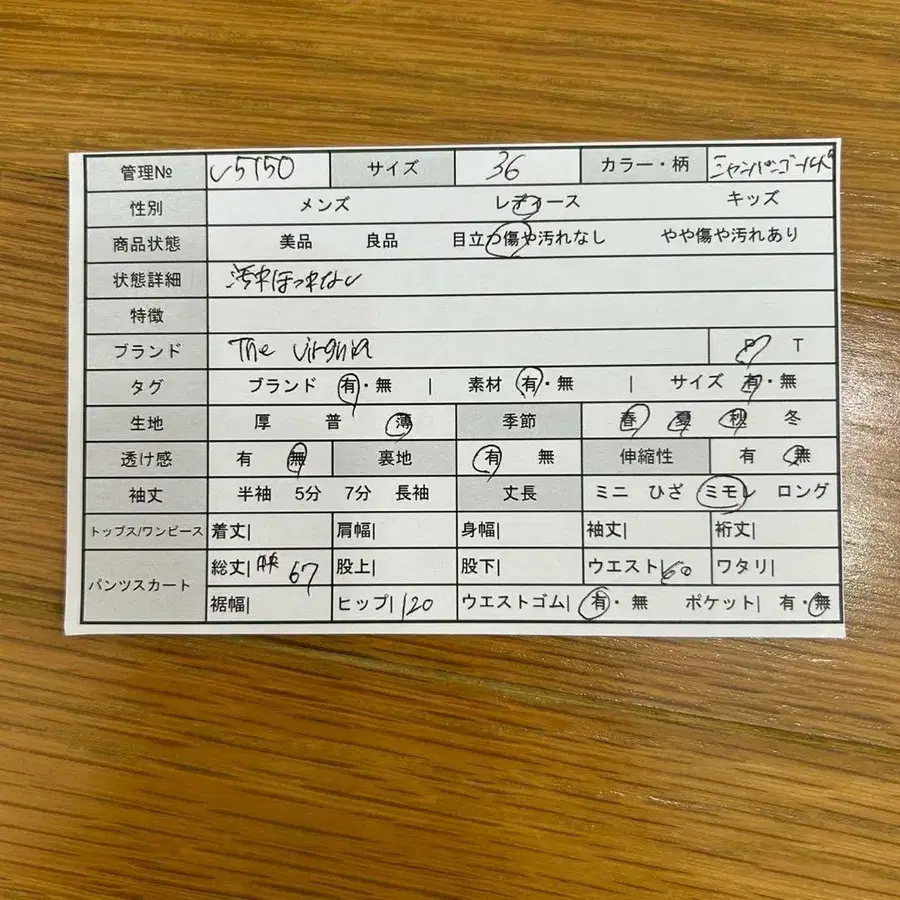 管理№ V5150 サイズ 36 カラー・柄 シャンパンゴールド
性別 メンズ レディース キッズ
商品状態 美品 良品 目立つ傷や汚れなし やや傷や汚れあり
状態詳細 汚れほつれなし
特徴
ブランド The Virginia P T
タグ ブランド 有・無 | 素材 有・無 | サイズ 有・無
生地 厚 普 薄 季節 春 夏 秋 冬
透け感 有 無 裏地 有 無 伸縮性 有 無
袖丈 半袖 5分 7分 長袖 丈長 ミニ ひざ ミモレ ロング
トップス/ワンピース 着丈| 肩幅| 身幅| 袖丈| 裄丈|
パンツスカート 総丈| 67 股上| 股下| ウエスト| 60 ワタリ|
裾幅| ヒップ| 120 ウエストゴム| 有・無 ポケット| 有・無